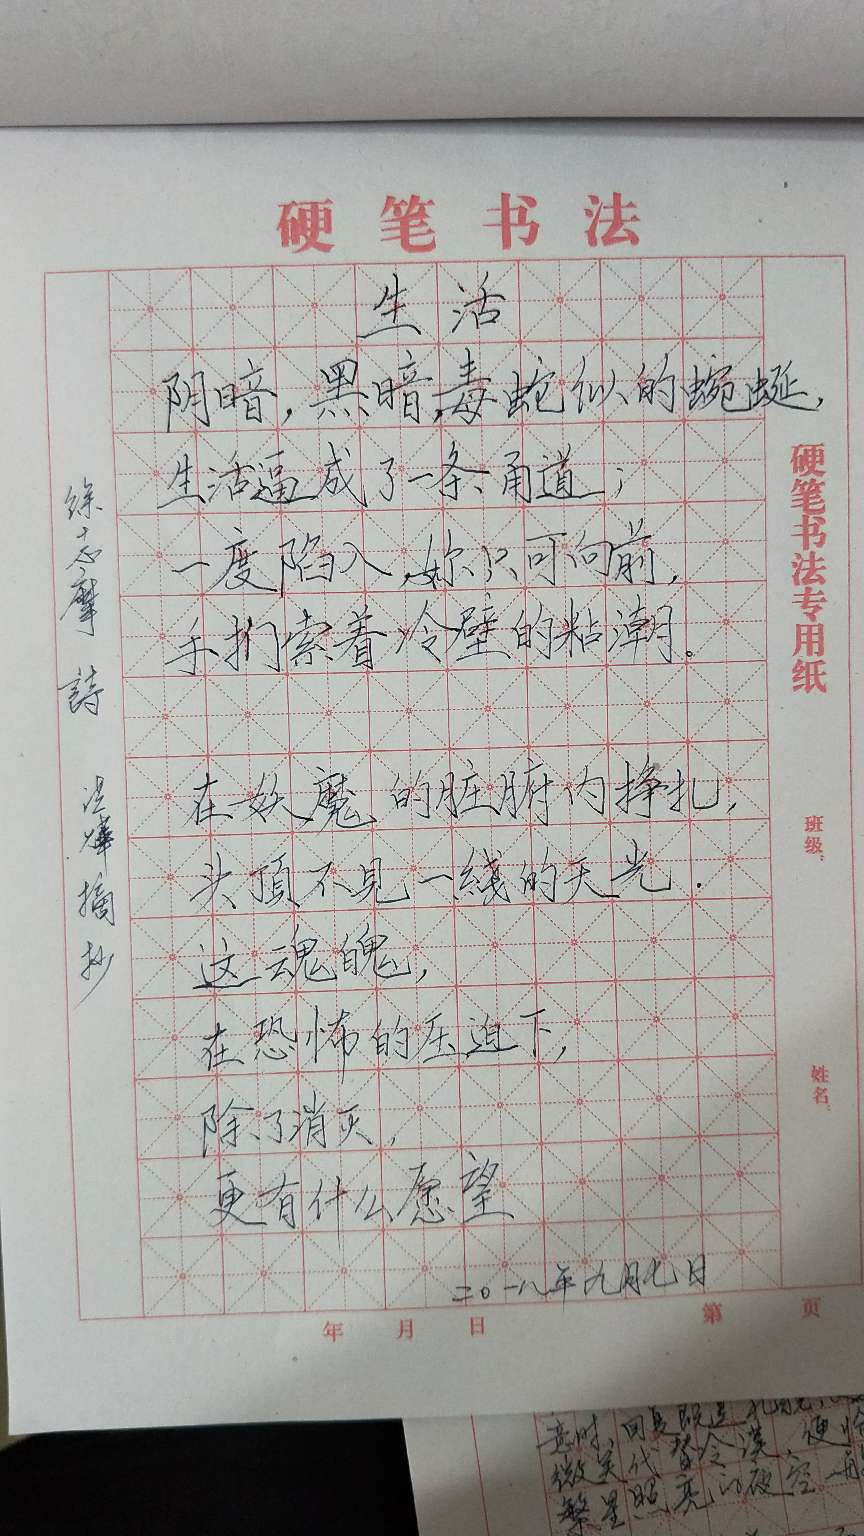 硬笔书法
生活
阴暗，黑暗，毒蛇似的蜿蜒，
生活逼成了一条甬道；
一度陷入，妳只可向前，
手扪索着冷壁的粘潮。
在妖魔的脏腑内挣扎，
头頂不见一綫的天光．
这魂魄，
在恐怖的压迫下，
除了消灭，
更有什么愿望
二〇一八年九月七日
徐志摩 詩 摘抄
硬笔书法专用纸
班级：
姓名：
年 月 日
第 页
微笑代替冷漠，便
繁星照亮的夜空